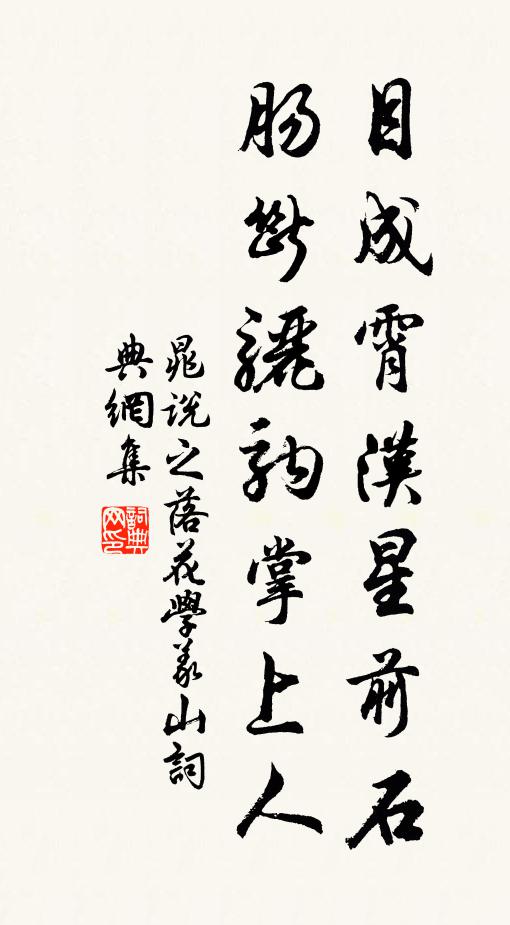 目成霄漢星前石
腸斷驪駒掌上人
晁說之落花學義山詞
典網集
詞典網印